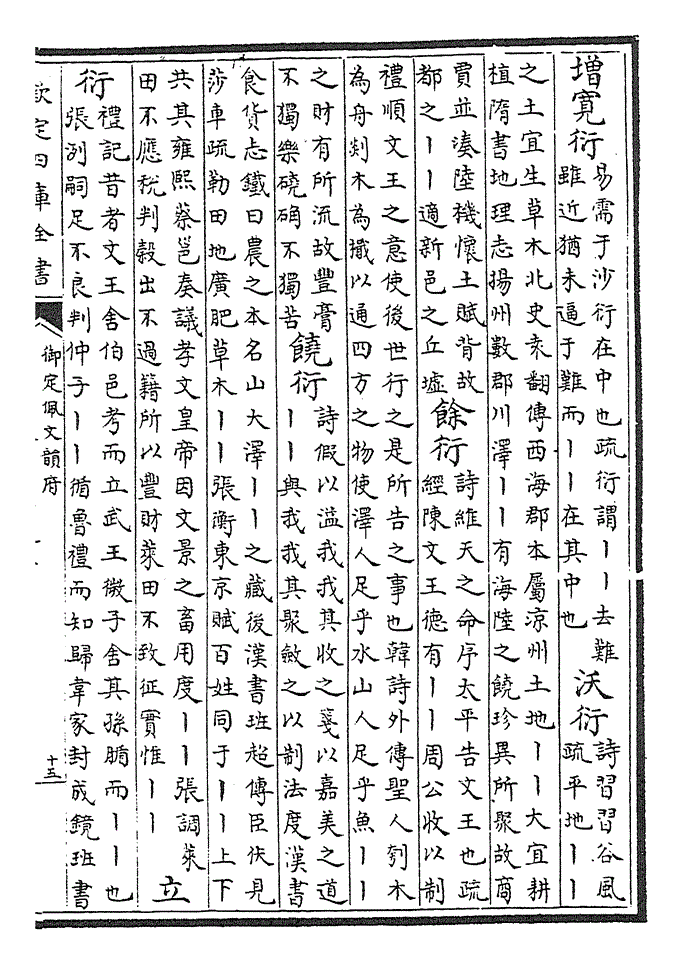 增寛衍
易需于沙衍在中也疏衍謂｜｜去難
雖近猶未逼于難而｜｜在其中也
沃衍
詩習習谷風
疏平地｜｜
之土宜生草木北史來翻傳西海郡本屬凉州土地｜｜大宜耕
植隋書地理志揚州數郡川澤｜｜有海陸之饒珍異所聚故商
賈並湊陸機懷土賦背故
都之｜｜適新邑之丘墟
餘衍
詩維天之命序太平告文王也疏
經陳文王德有｜｜周公收以制
禮順文王之意使後世行之是所告之事也韓詩外傳聖人刳木
為舟剡木為檝以通四方之物使澤人足乎水山人足乎魚｜｜
之財有所流故豐膏
不獨樂磽确不獨苦
饒衍
詩假以溢我我其收之箋以嘉美之道
｜｜與我我其聚斂之以制法度漢書
食貨志鐵曰農之本名山大澤｜｜之藏後漢書班超傳臣伏見
莎車疏勒田地廣肥草木｜｜張衡東京賦百姓同于｜｜上下
共其雍熙蔡邕奏議孝文皇帝因文景之畜用度｜｜張調萊
田不應稅判穀出不過籍所以豐財萊田不致征實惟｜｜
立
衍
禮記昔者文王舍伯邑考而立武王微子舍其孫腯而｜｜也
張洌嗣足不良判仲子｜｜循魯禮而知歸韋家封成鏡班書
欽定四庫全書
御定佩文韻府
十五